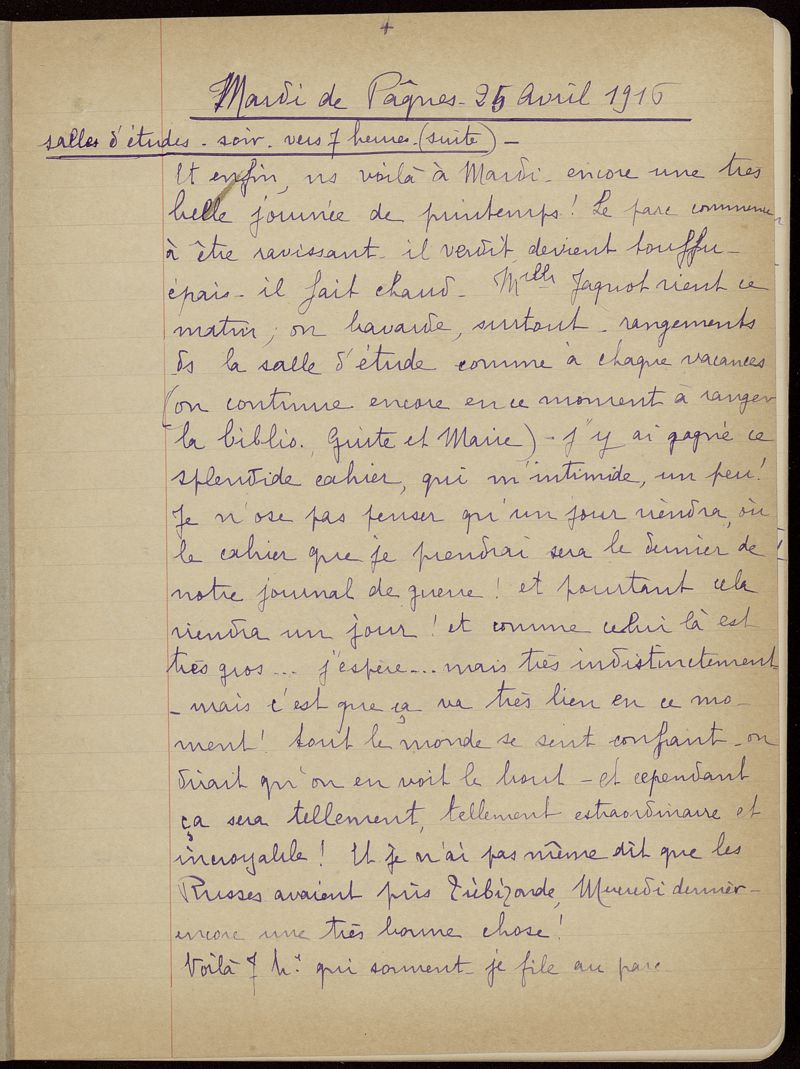 +
Mardi de Pâques - 25 Avril 1916
salles d'études - soir - vers 7 heures - (suite) -
Et enfin, ns voilà à Mardi - encore une très
belle journée de printemps ! Le parc commence
à être ravissant - il verdit, devient touffu -
épais - il fait chaud - Mlle Jaquot vient ce
matin, on bavarde, surtout - rangements
ds la salle d'étude comme à chaque vacances
(on continue encore en ce moment à ranger
la biblio., Guite et Marie) - j'y ai gagné ce
splendide cahier, qui m'intimide, un peu !
Je n'ose pas penser qu'un jour viendra, où
le cahier que je prendrai sera le dernier de
notre journal de guerre ! et pourtant cela
viendra un jour ! et comme celui là est
très gros... j'espère... mais très indistinctement
- mais c'est que ça va très bien en ce mo-
ment ! tout le monde se sent confiant - on
dirait qu'on en voit le bout - et cependant
ça sera tellement, tellement extraordinaire et
incroyable ! Et je n'ai pas même dit que les
Russes avaient pris Trébizonde, Mercredi dernier -
encore une très bonne chose !
Voilà 7 h. qui sonnent - je file au parc